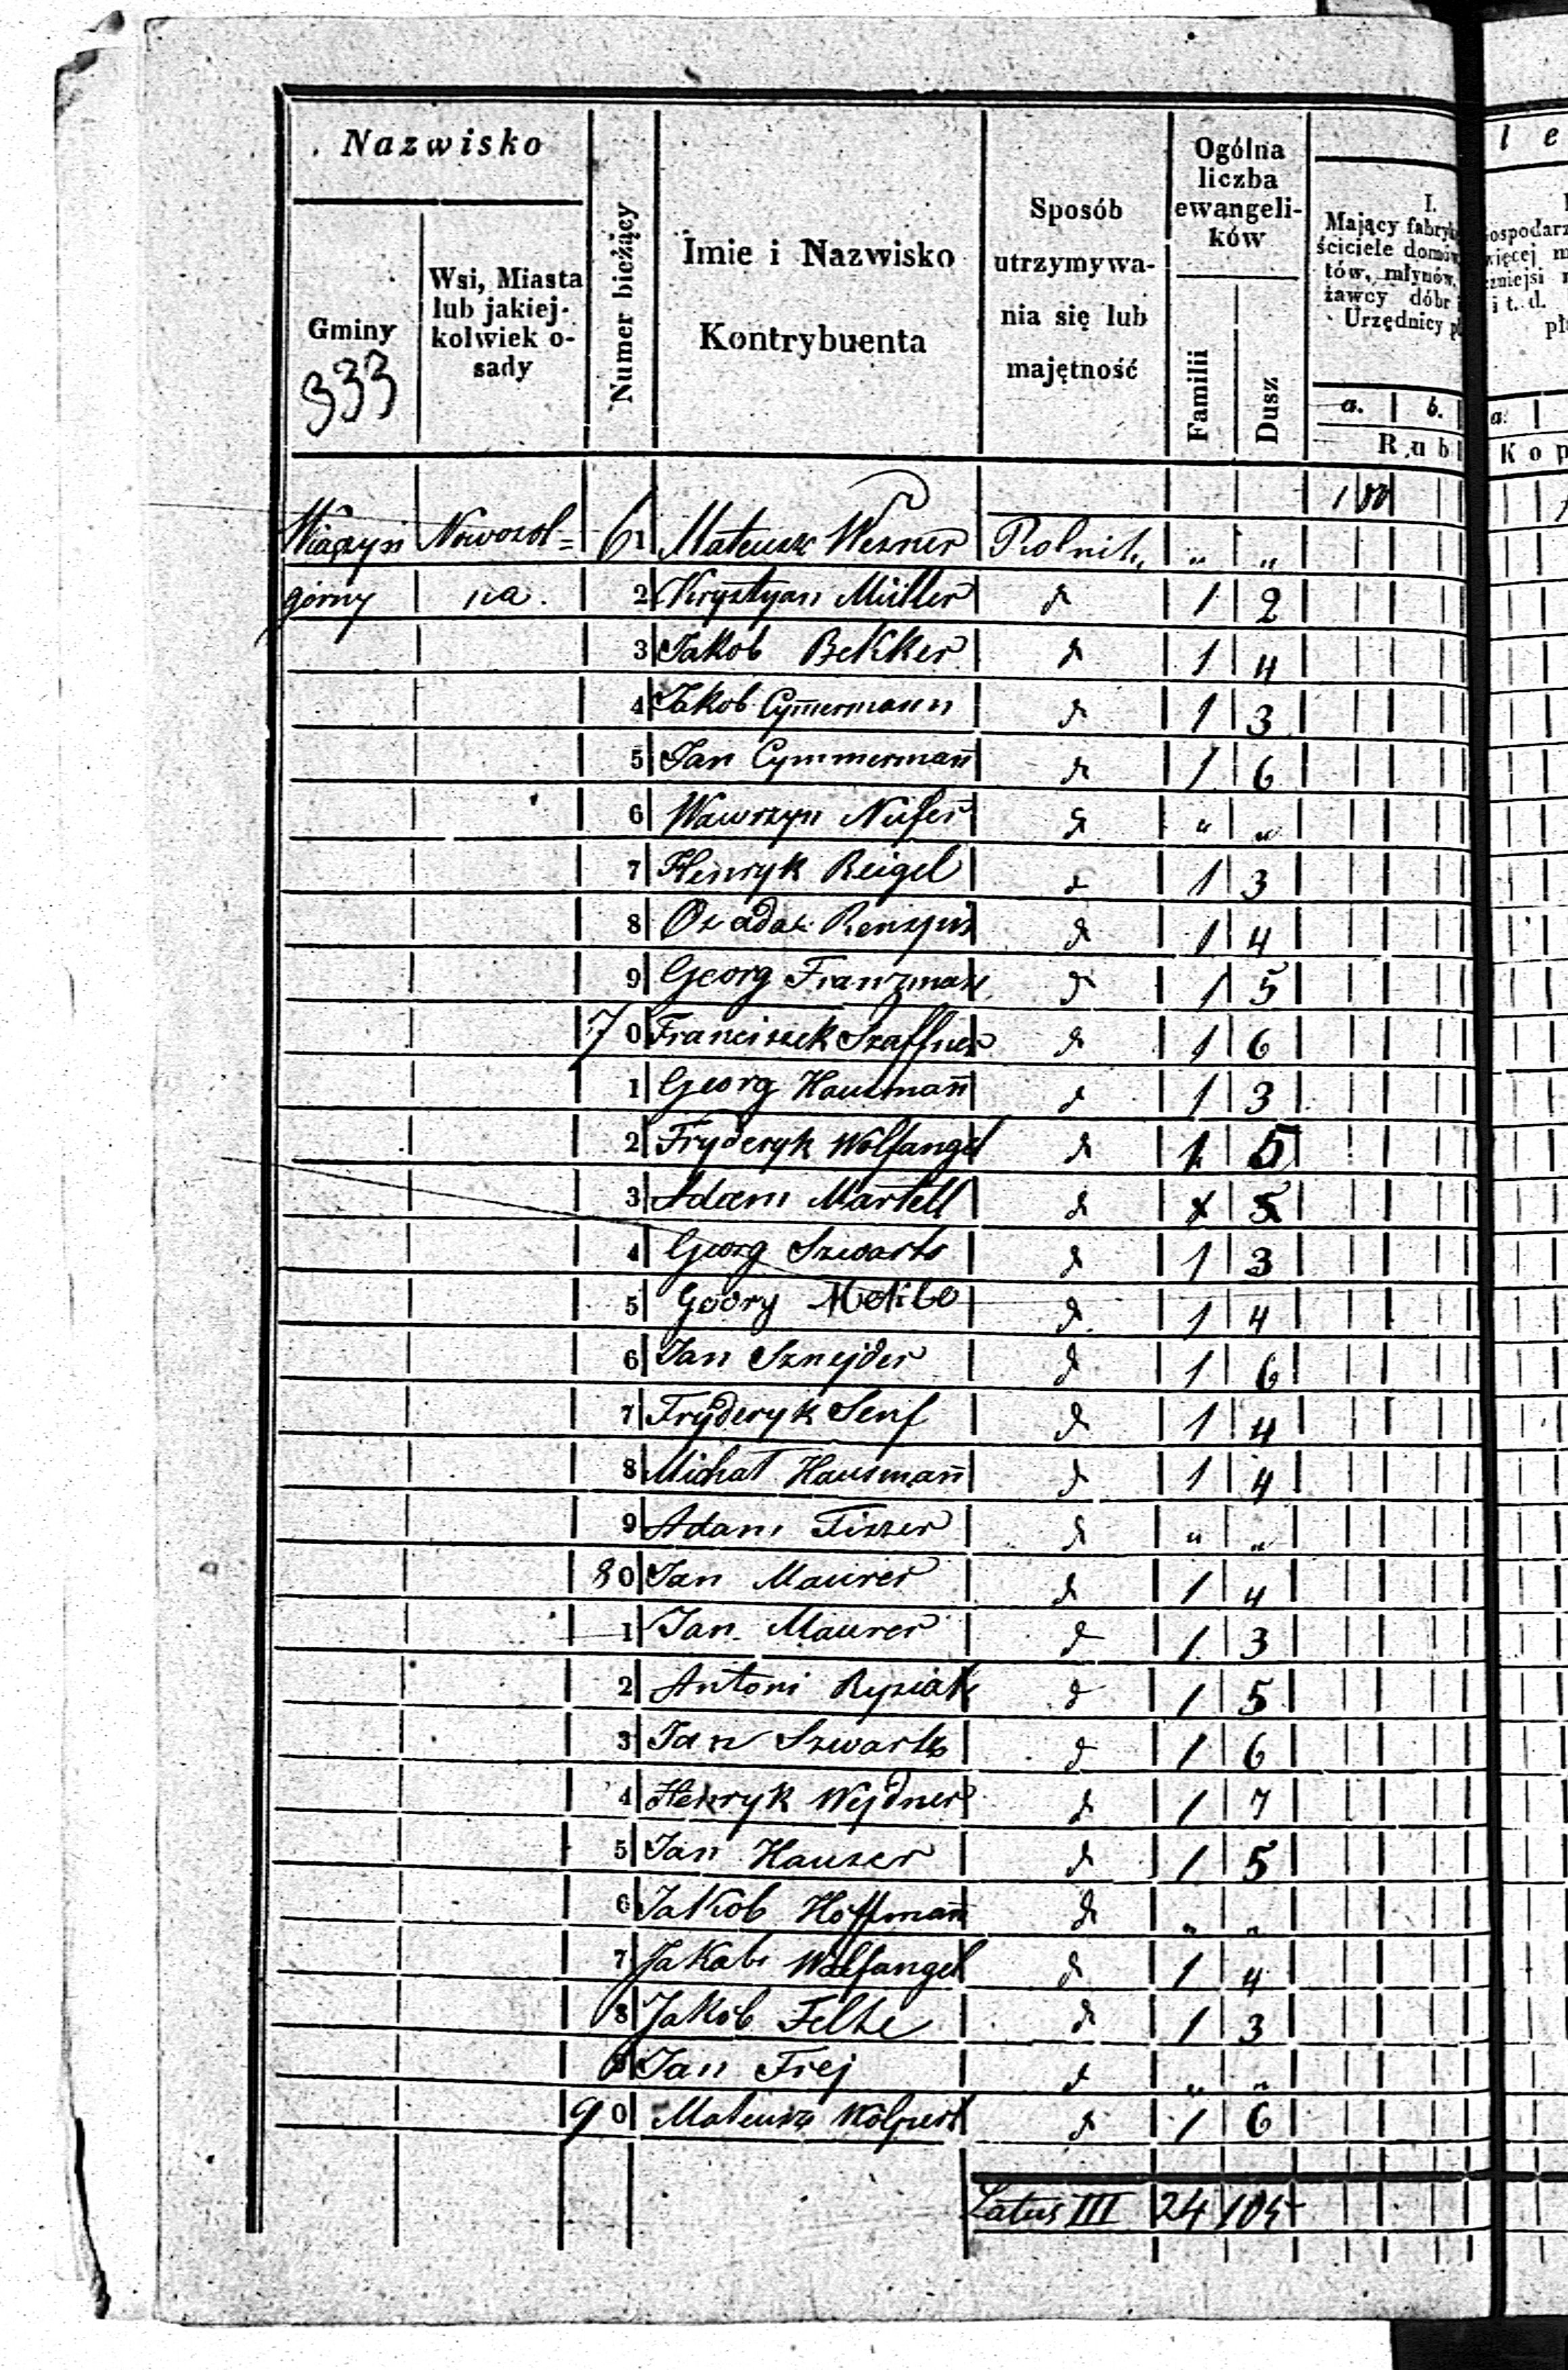 Nazwisko
Gminy
333
Wsi, Miasta
lub jakiej-
kolwiek o-
sady
Numer bieżący
Imie i Nazwisko
Kontrybuenta
Sposób
utrzymywa-
nia się lub
majętność
Ogólna
liczba
ewangeli-
ków
Familii
Dusz
I.
Mający fabryk
ściciele domów
tów, młynów,
żawcy dóbr
Urzędnicy
a. b.
Rubl
l e
ospodarz
więcej
i t. d.
a.
Kop
1 80
Wiązyn Nowosol= 61 Mateusz Wesner Rolnik „ „
górny na. 2 Krystyan Müller d 1 2
3 Jakob Bekker d 1 4
4 Jakob Cym̄ermann d 1 3
5 Jan Cymmerman̄ d 1 6
6 Wawrzyn Nufer d „ „
7 Henryk Beigel d 1 3
8 d 1 4
9 Georg Franzman d 1 5
70 Franciszek Szaffner d 1 6
1 Georg Hausman̄ d 1 3
2 Fryderyk Wolfangel d 1 5
3 Adam Martell d 1 5
4 Georg Szwarts d 1 3
5 Georg d 1 4
6 Jan Sznejder d 1 6
7 Fryderyk Senf d 1 4
8 Michał Hausman̄ d 1 4
9 Adam Fiszer d „ „
80 Jan Maurer d 1 4
1 Jan Maurer d 1 3
2 Antoni Rysiak d 1 5
3 Jan Szwarts d 1 6
4 Henryk Wejdner d 1 7
5 Jan Hauser d 1 5
6 Jakob Hoffman̄ d „ „
7 Jakob Wolfangel d 1 4
8 Jakob Felke d 1 3
9 Jan Frej d „ „
90 Mateusz Wolpert d 1 6
Latus III 24 104